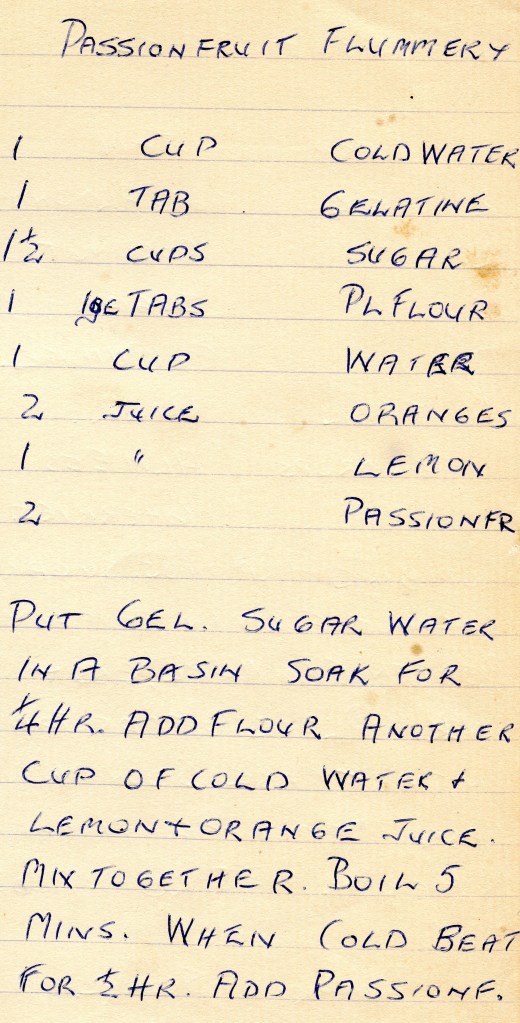 PASSIONFRUIT FLUMMERY
1 CUP COLD WATER
1 TAB GELATINE
1½ CUPS SUGAR
1 lge TABS PL FLOUR
1 CUP WATER
2 JUICE ORANGES
1 " LEMON
2 PASSIONFR
PUT GEL. SUGAR WATER
IN A BASIN SOAK FOR
¼ HR. ADD FLOUR ANOTHER
CUP OF COLD WATER +
LEMON + ORANGE JUICE.
MIX TOGETHER. BOIL 5
MINS. WHEN COLD BEAT
FOR ½ HR. ADD PASSIONF.